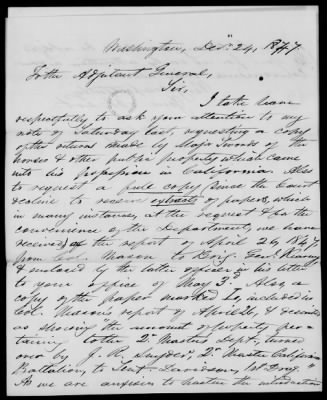 Washington, Decr 24, 1847.
To the Adjutant General,
Sir,
I take leave
respectfully to ask your attention to my
note of Saturday last, requesting a copy
of the returns made by Major Swords of the
horses & other public property which came
into his possession in California. Also
to request a full copy (since the Court
decline to receive extracts of papers, which
in many instances, at the request & for the
convenience of the Department, we have
received) of the report of April 26, 1847
from Col. Mason to Brig. Genl Kearny
& enclosed by the latter officer in his letter
to your office of May 3. Also, a
copy of the paper marked included in
Col. Mason's report of April 26, &
as showing the amount of property per-
taining to the Qr Masters Dept, turned
over by J. R. Snyder, Qr Master California
Battalion, to Lieut. Davidson, 1st Drag.
As we are anxious to hasten the introduction